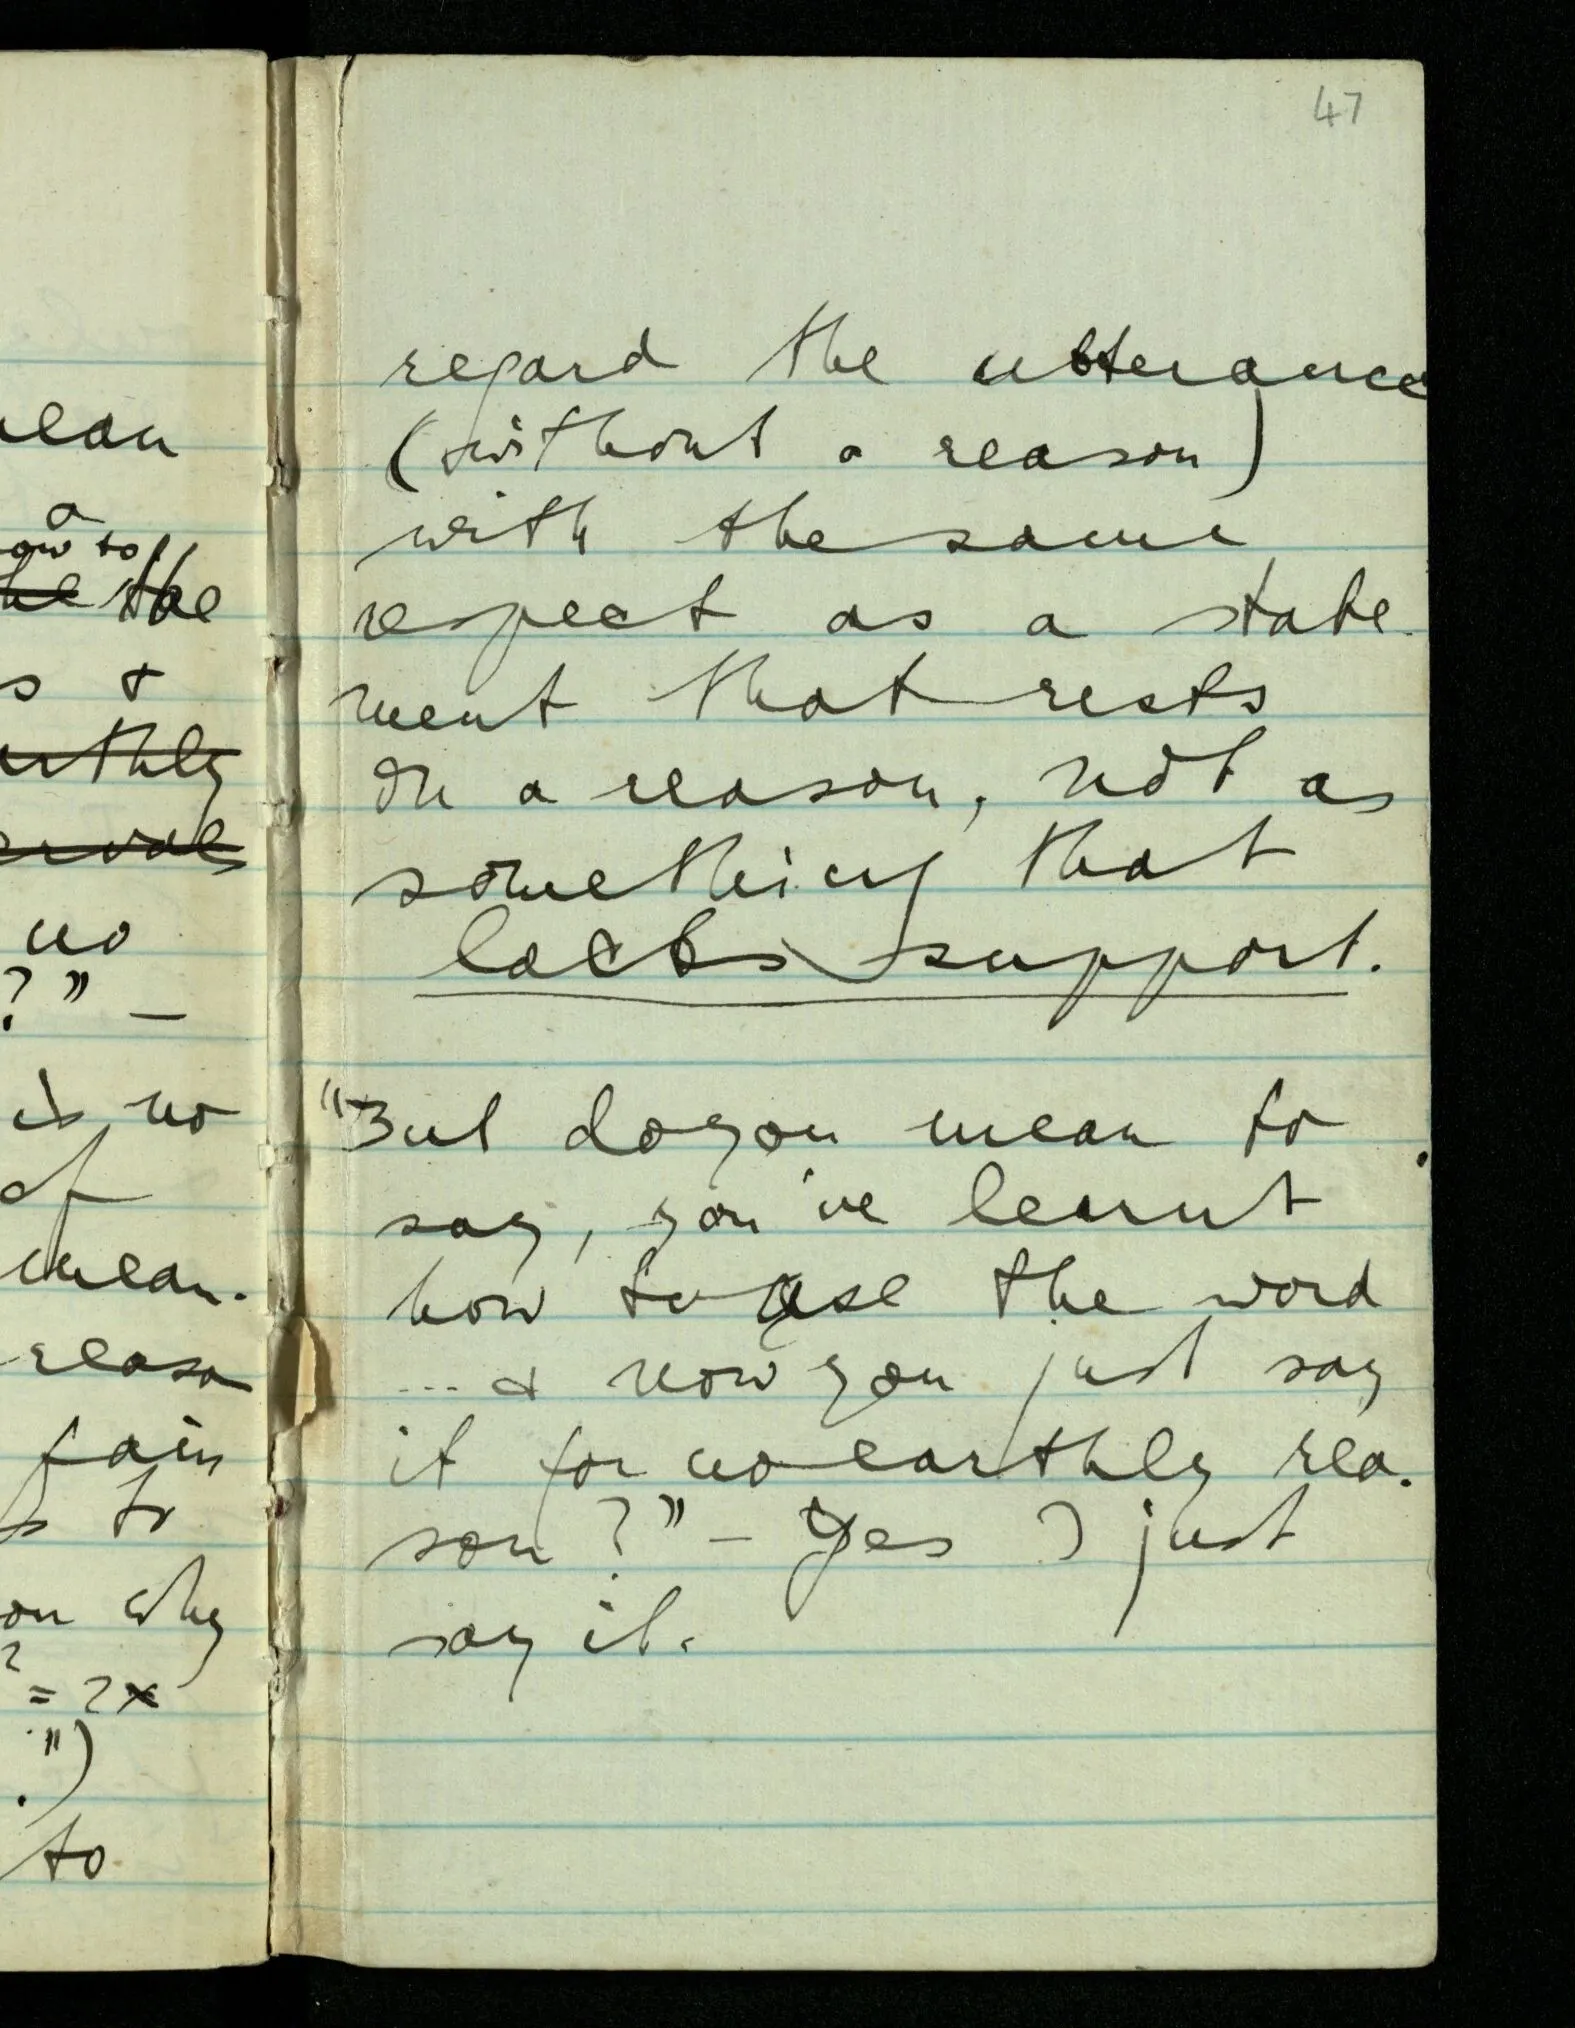 47
regard the utterance
(without a reason)
with the same
respect as a state-
ment that rests
on a reason, not as
something that
lacks support.
"But do you mean to
say, you've learnt
how to use the word
... & now you just say
it for no earthly rea-
son?" – Yes I just
say it.
mean
a
how to
the the
s &
earthly
no
?" –
is no
of
mean.
reason
pain
to
on why
2
= 2x
")
.)
to